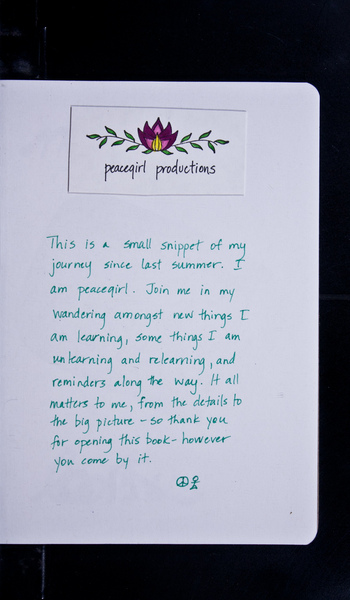 peacegirl productions
This is a small snippet of my
journey since last summer. I
am peacegirl. Join me in my
wandering amongst new things I
am learning, some things I am
unlearning and relearning, and
reminders along the way. It all
matters to me, from the details to
the big picture - so thank you
for opening this book - however
you come by it.